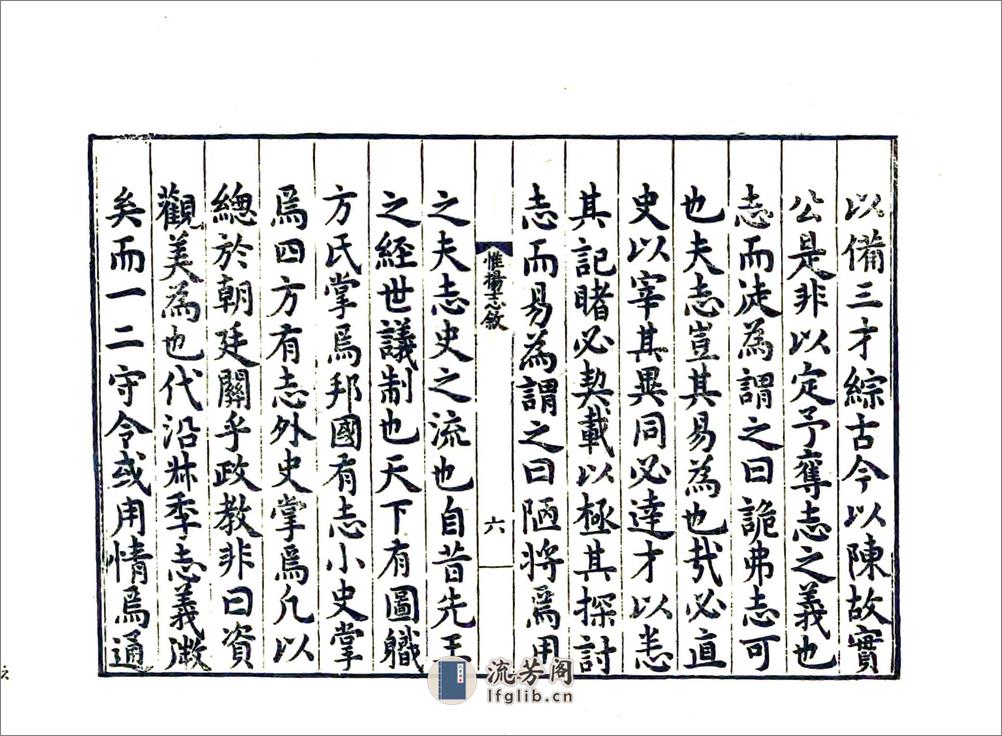 以備三才綜古今以陳故實
公是非以定予奪志之義也
志而淺為謂之曰詭弗志可
也夫志豈其易為也㢤必直
史以宰其異同必達才以恙
其記睹必契載以極其探討
志而易為謂之曰陋將焉用
惟揚志敘
六
之夫志史之流也自昔先王
之經世議制也天下有圖職
方氏掌焉邦國有志小史掌
焉四方有志外史掌焉凡以
總於朝廷關乎政教非曰資
觀美為也代沿叔季志義微
矣而一二守令或用情焉通
流芳阁
lfglib.cn